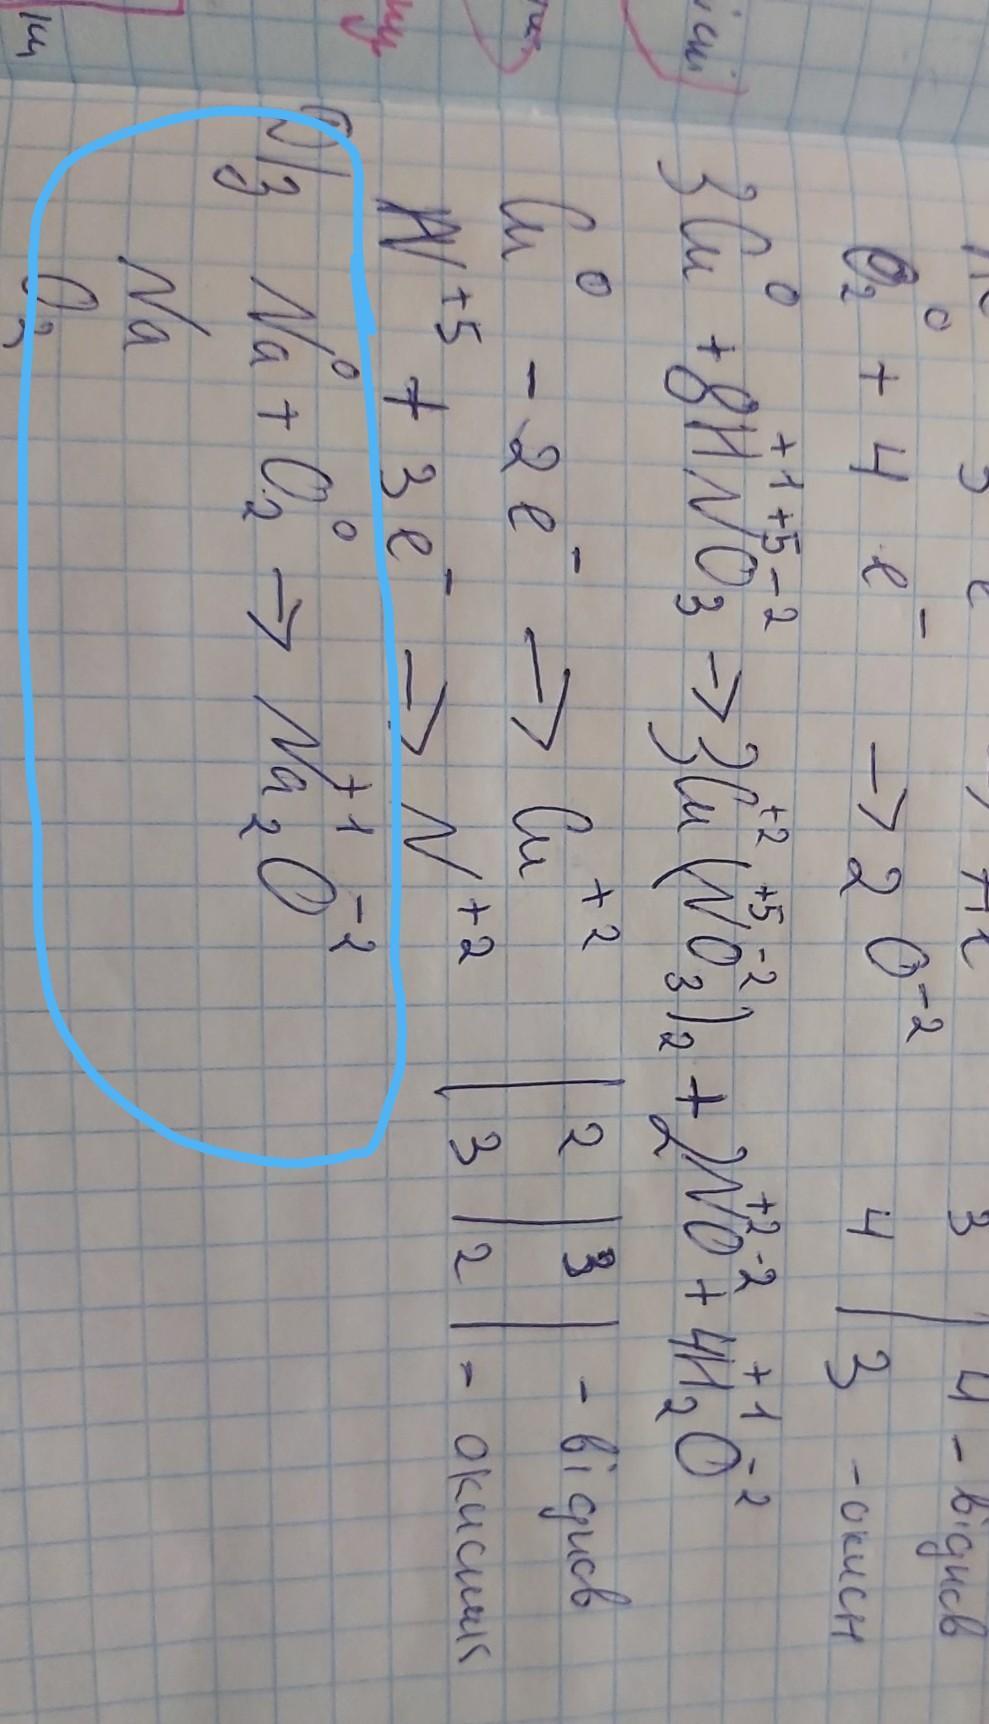 O₂⁰ + 4 e⁻ → 2 O⁻² 4 | 3 - окисн
3 | 4 - віднов
3Cu⁰ + 8H⁺¹N⁺⁵O₃⁻² → 3Cu⁺²(N⁺⁵O₃⁻²)₂ + 2N⁺²O⁻² + 4H₂⁺¹O⁻²
Cu⁰ - 2e⁻ → Cu⁺² | 2 | 3 | - віднов
N⁺⁵ + 3e⁻ → N⁺² | 3 | 2 | - окисник
Д/з Na⁰ + O₂⁰ → Na₂⁺¹O⁻²
Na
O₂